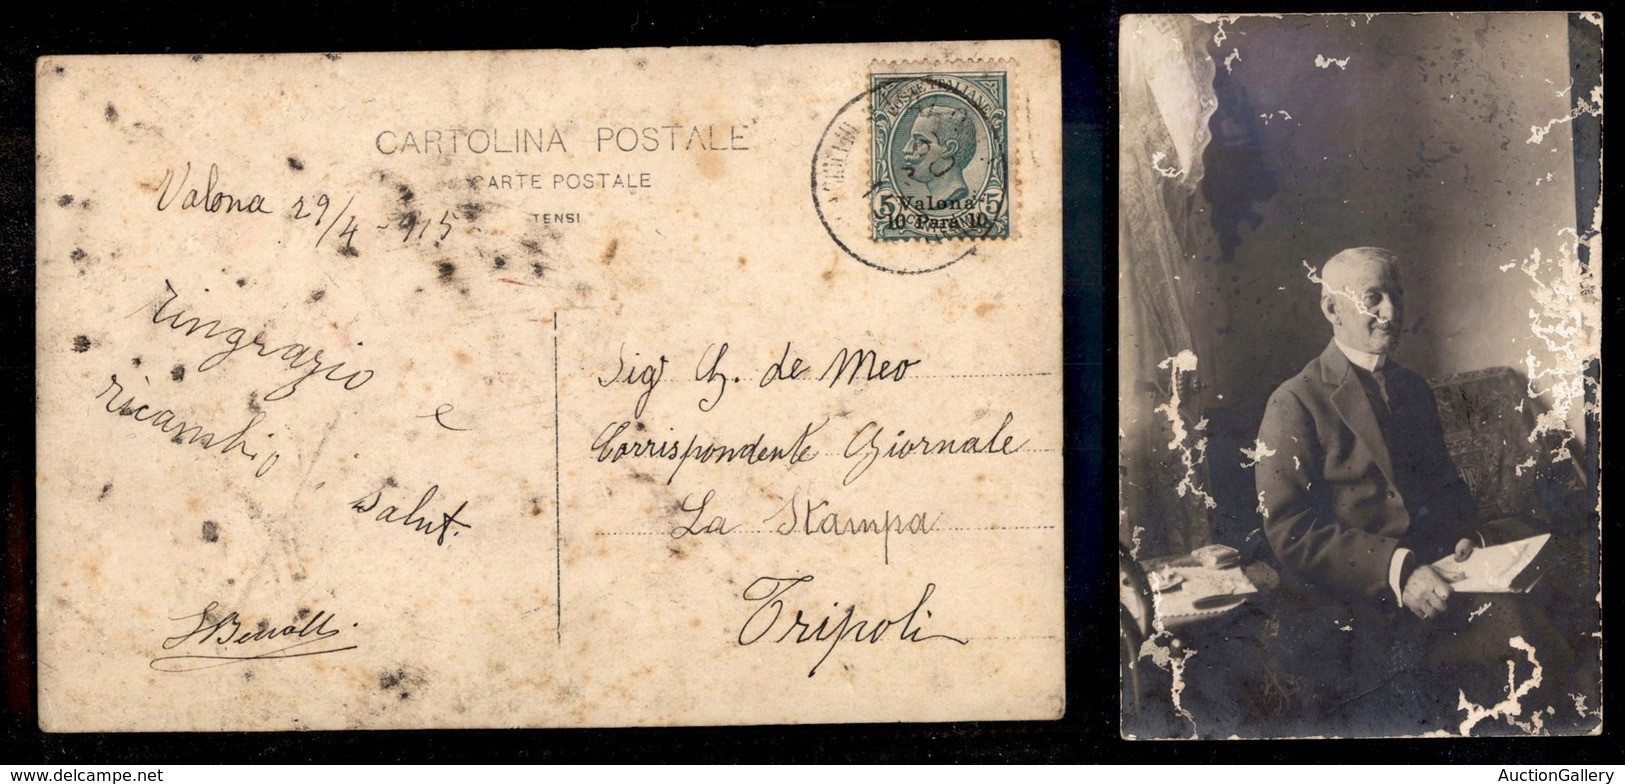 CARTOLINA POSTALE
CARTE POSTALE
TENSI
Valona 29/4-915
ringrazio
e
ricambio
saluti.
POSTE ITALIANE
5 5
Valona
10 Para 10
Sigr G. de Meo
Corrispondente Giornale
La Stampa
Tripoli
AuctionGallery